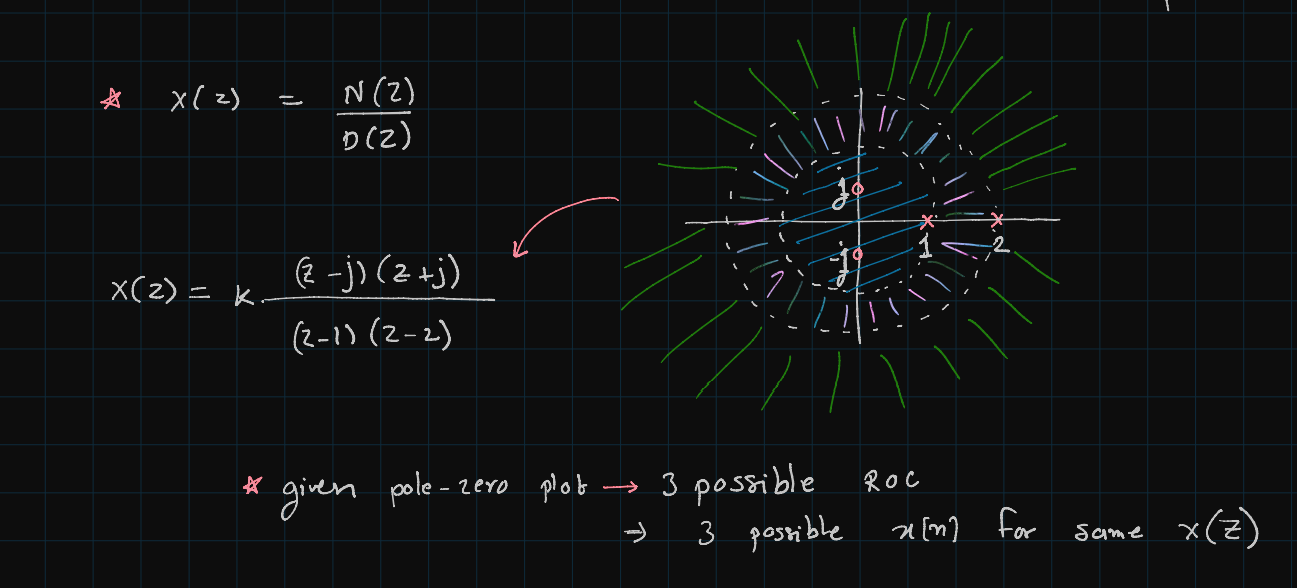 ☆ X(z) = N(z) / D(z)
X(z) = k · (z-j)(z+j) / (z-1)(z-2)
j
-j
1 2
☆ given pole-zero plot → 3 possible ROC
→ 3 possible x[n] for same X(z)